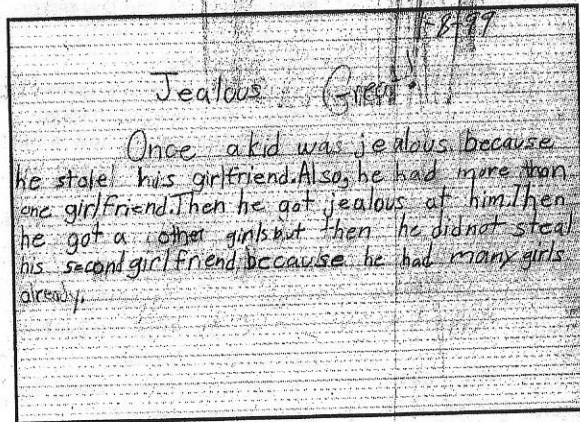 1-8-99
Jealous Great!
Once a kid was jealous because
he stole his girlfriend. Also, he had more than
one girlfriend. Then he got jealous at him. Then
he got a other girls but then he didnot steal
his second girlfriend because he had many girls
already.